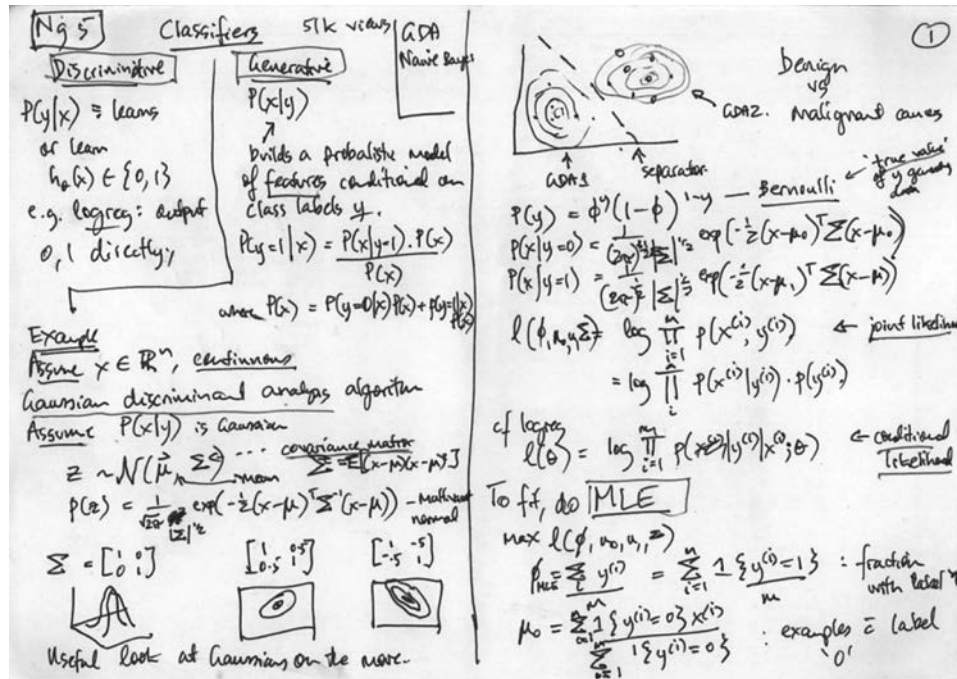 Ng 5 Classifiers 51k views
GDA
Naive Bayes
Discriminative
P(y|x) = learns
or learn
h_θ(x) ∈ {0,1}
e.g. logreg: output
0, 1 directly,
Generative
P(x|y)
builds a probalistic model
of features conditional on
class labels y.
P(y=1|x) = P(x|y=1).P(x) / P(x)
where P(x) = P(y=0|x)P(x) + P(y=1|x)P(x)
Example
Assume x ∈ ℝⁿ, continuous
Gaussian discriminant analysis algorithm
Assume P(x|y) is Gaussian
z ~ N(μ⃗, Σ) ... covariance matrix
mean Σ = E[(x-μ)(x-μ)ᵀ]
p(z) = 1/(√2π |Σ|^½) exp(-½(x-μ)ᵀ Σ⁻¹(x-μ)) –
normal
Σ = [1 0; 0 1] [1 0.5; 0.5 1] [1 -.5; -.5 1]
Useful look at Gaussians on the move.
①
Benign
vs
Malignant
GDA2.
GDA1
separator
P(y) = φ^y (1-φ)^(1-y) — Bernoulli
"true value"
of y
P(x|y=0) = 1/((2π)^½ |Σ|^½) exp(-½(x-μ₀)ᵀ Σ(x-μ₀))
P(x|y=1) = 1/((2π)^½ |Σ|^½) exp(-½(x-μ₁)ᵀ Σ(x-μ))
l(φ,μ₀,μ,Σ) = log ∏_{i=1}^m p(x^(i), y^(i)) ← joint likelihood
= log ∏_i^m p(x^(i)|y^(i)) . p(y^(i))
cf logreg
l(θ) = log ∏_{i=1}^m p(y^(i)|x^(i);θ) ← conditional
likelihood
To fit, do MLE
max l(φ, μ₀, μ₁, Σ)
φ_MLE = Σ_i y^(i) / m = Σ_{i=1}^m 1{y^(i)=1} / m : fraction
with label
μ₀ = Σ_{i=1}^m 1{y^(i)=0} x^(i) / Σ_{i=1}^m 1{y^(i)=0} : examples c̄ label
'0'